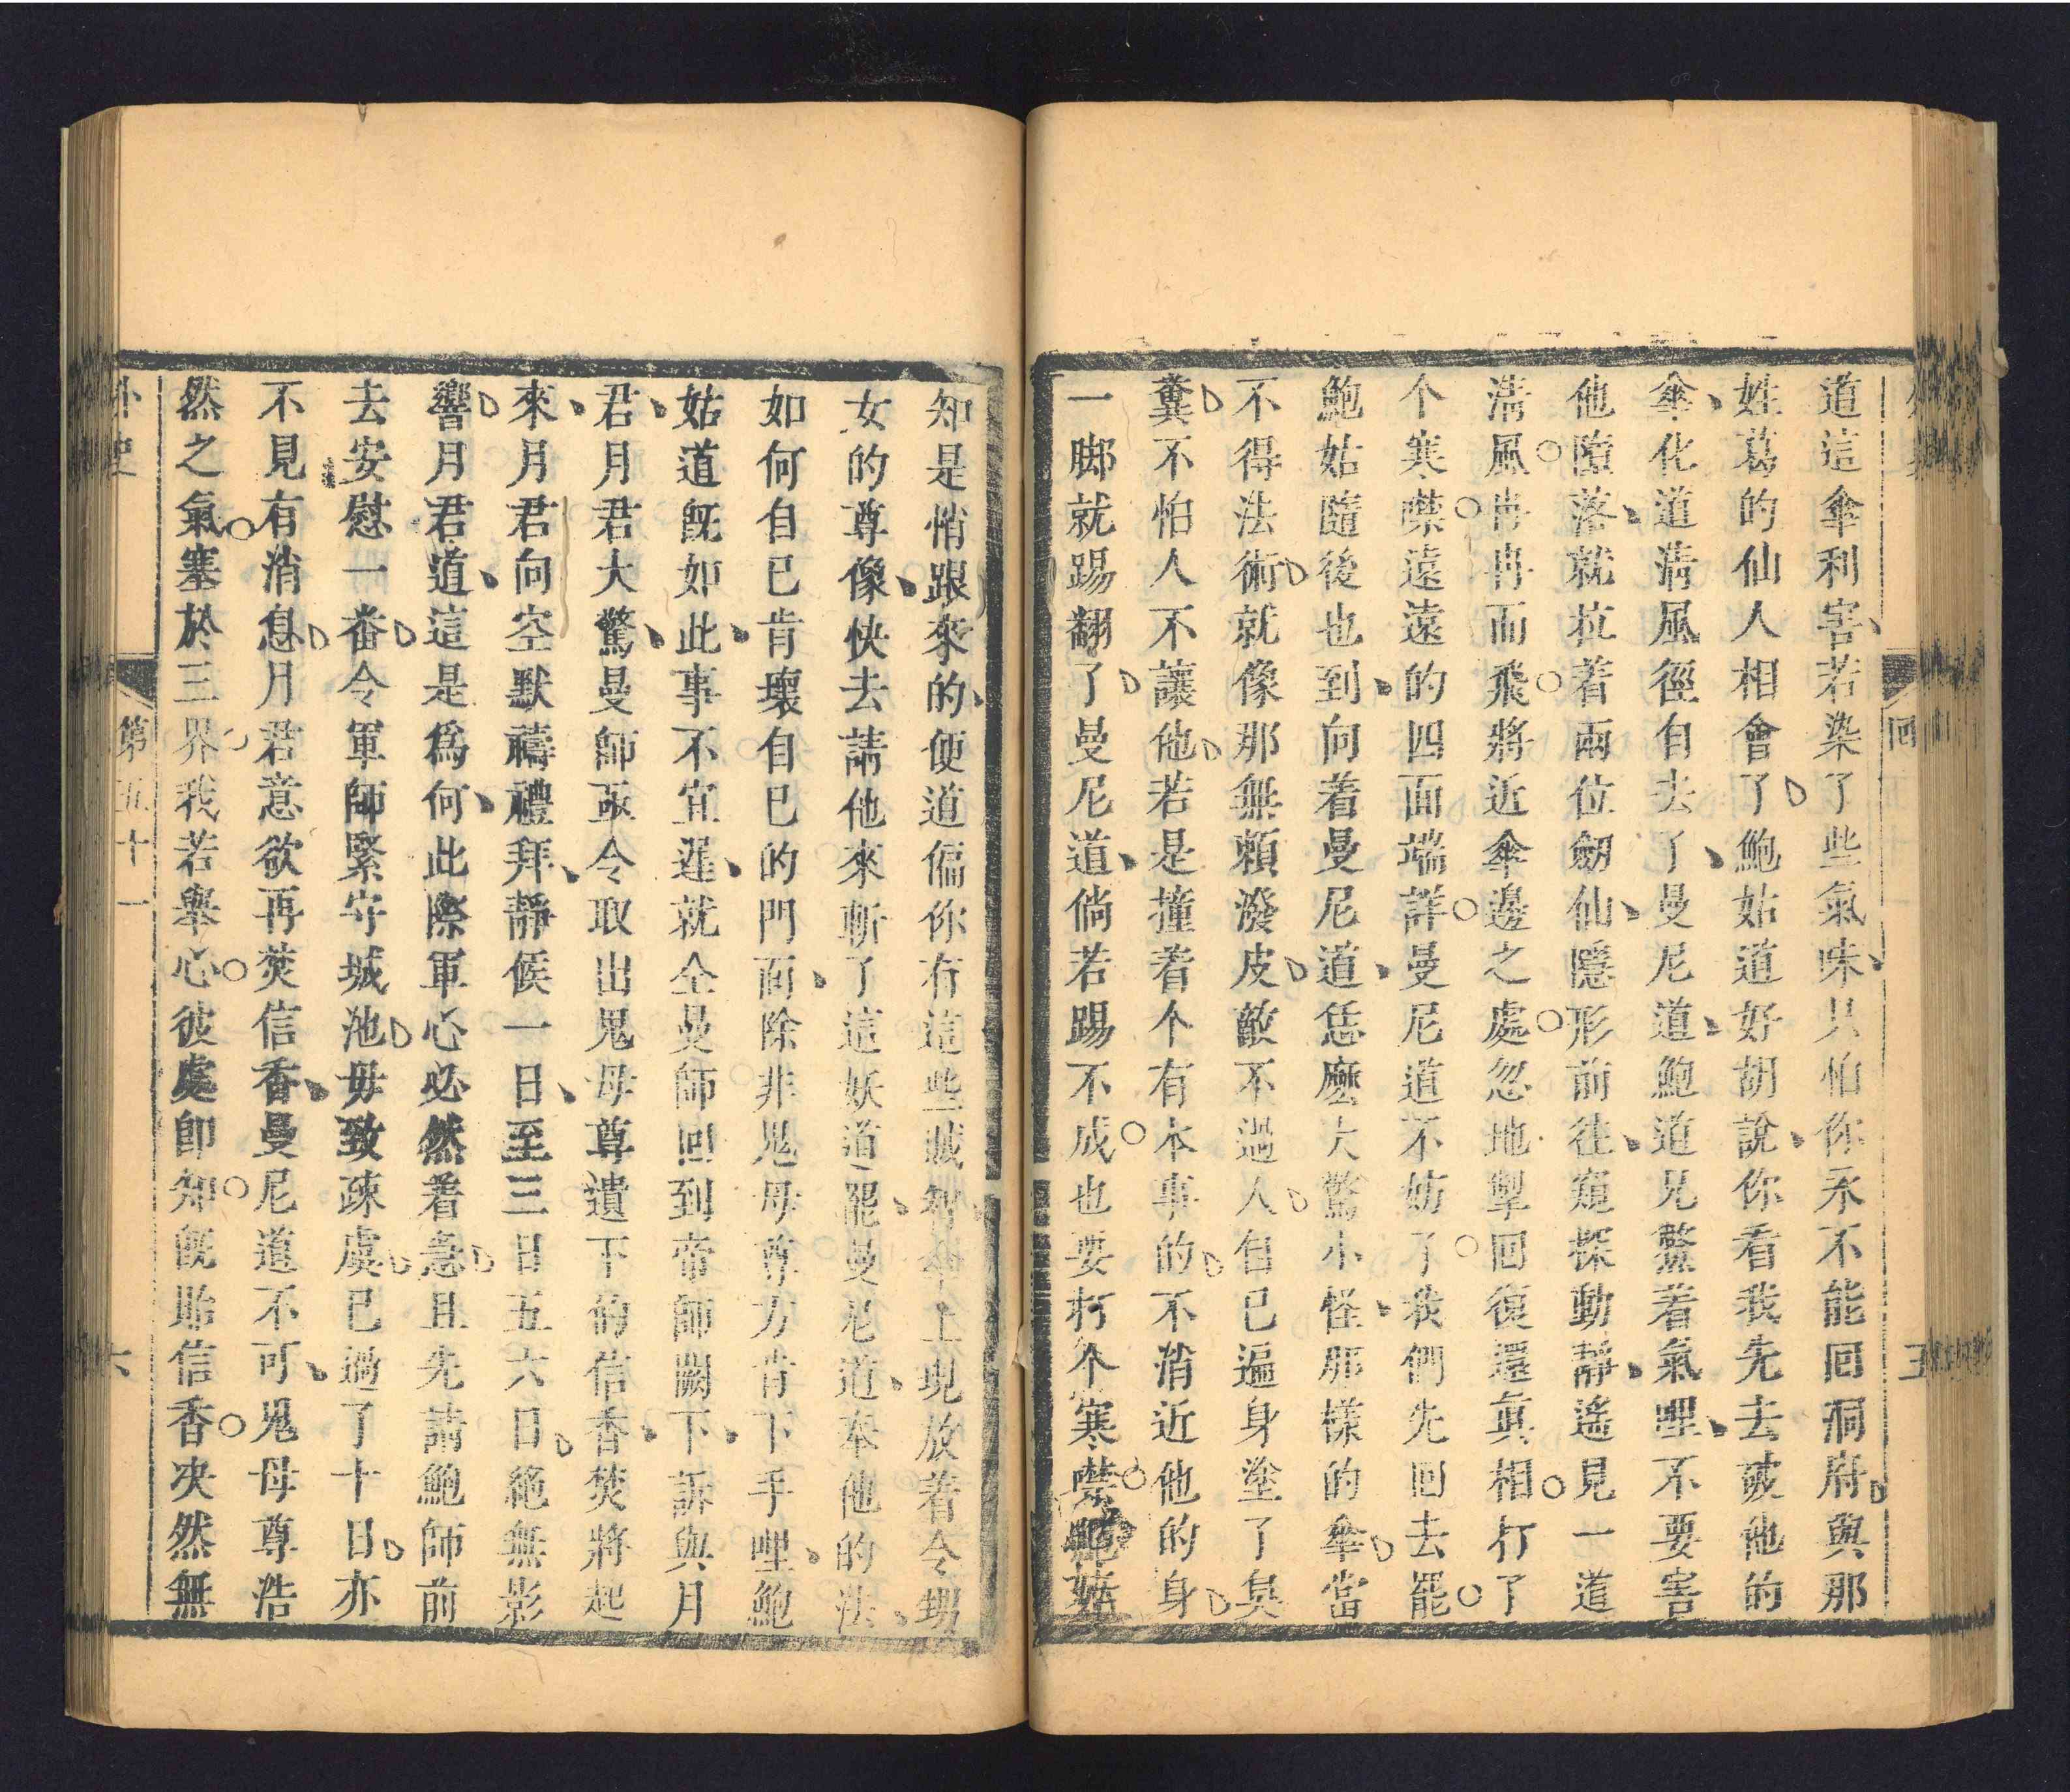 道這傘利害若染了些氣味只怕你永不能囘洞府與那
姓葛的仙人相會了鮑姑道好胡說你看我先去破他的
傘化道淸風徑自去了曼尼道鮑道兄鱉着氣哩不要害
他墮落就拉着兩位劒仙隱形前往窺探動靜遙見一道
淸風冉冉而飛將近傘邊之處忽地掣囘復還眞相打了
个寒噤遠遠的四面端詳曼尼道不妨了我們先回去罷
鮑姑隨後也到向着曼尼道恁麽大驚小怪那樣的傘當
不得法術就像那無賴潑皮敵不過人自己遍身塗了臭
糞不怕人不讓他若是撞着个有本事的不消近他的身
一脚就踢翻了曼尼道倘若踢不成也要打个寒噤鮑姑
知是悄跟來的便道偏你有這些賊智傘上現放着令甥
女的尊像快去請他來斬了這妖道罷曼尼道奉他的法
如何自己肯壞自己的門面除非鬼母尊方肯下手哩鮑
姑道旣如此事不宜遲就仝曼師囘到帝師闕下訴與月
君月君大驚曼師亟令取出鬼母尊遺下的信香焚將起
來月君向空默禱禮拜靜候一日至三日五六日絕無影
響月君道這是爲何此際軍心必然着急且先請鮑師前
去安慰一番令軍師緊守城池毋致疎虞已過了十日亦
不見有消息月君意欲再焚信香曼尼道不可鬼母尊浩
然之氣塞於三界我若舉心彼處即知旣貽信香决然無
外史
第五十一
六